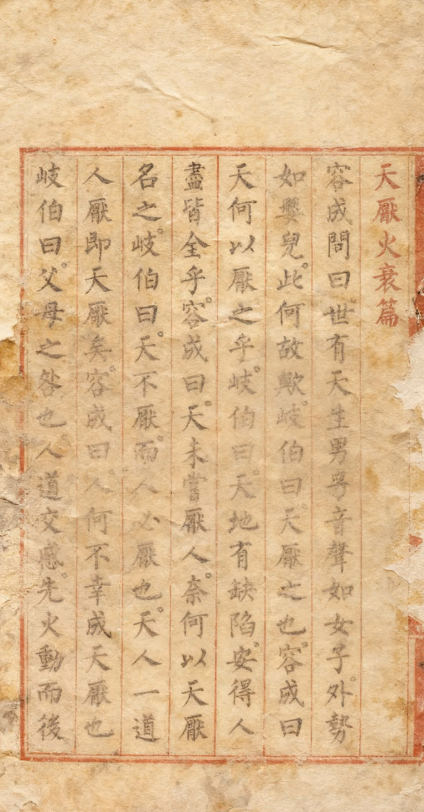 天厭火衰篇
容成問曰世有天生男孚音聲如女子外勢
如嬰兒此何故歟岐伯曰天厭之也容成曰
天何以厭之乎岐伯曰天地有缺陷安得人
盡皆全乎容成曰天未嘗厭人奈何以天厭
名之岐伯曰天不厭而人必厭也天人一道
人厭即天厭矣容成曰人何不幸成天厭也
岐伯曰父母之咎也人道交感先火動而後